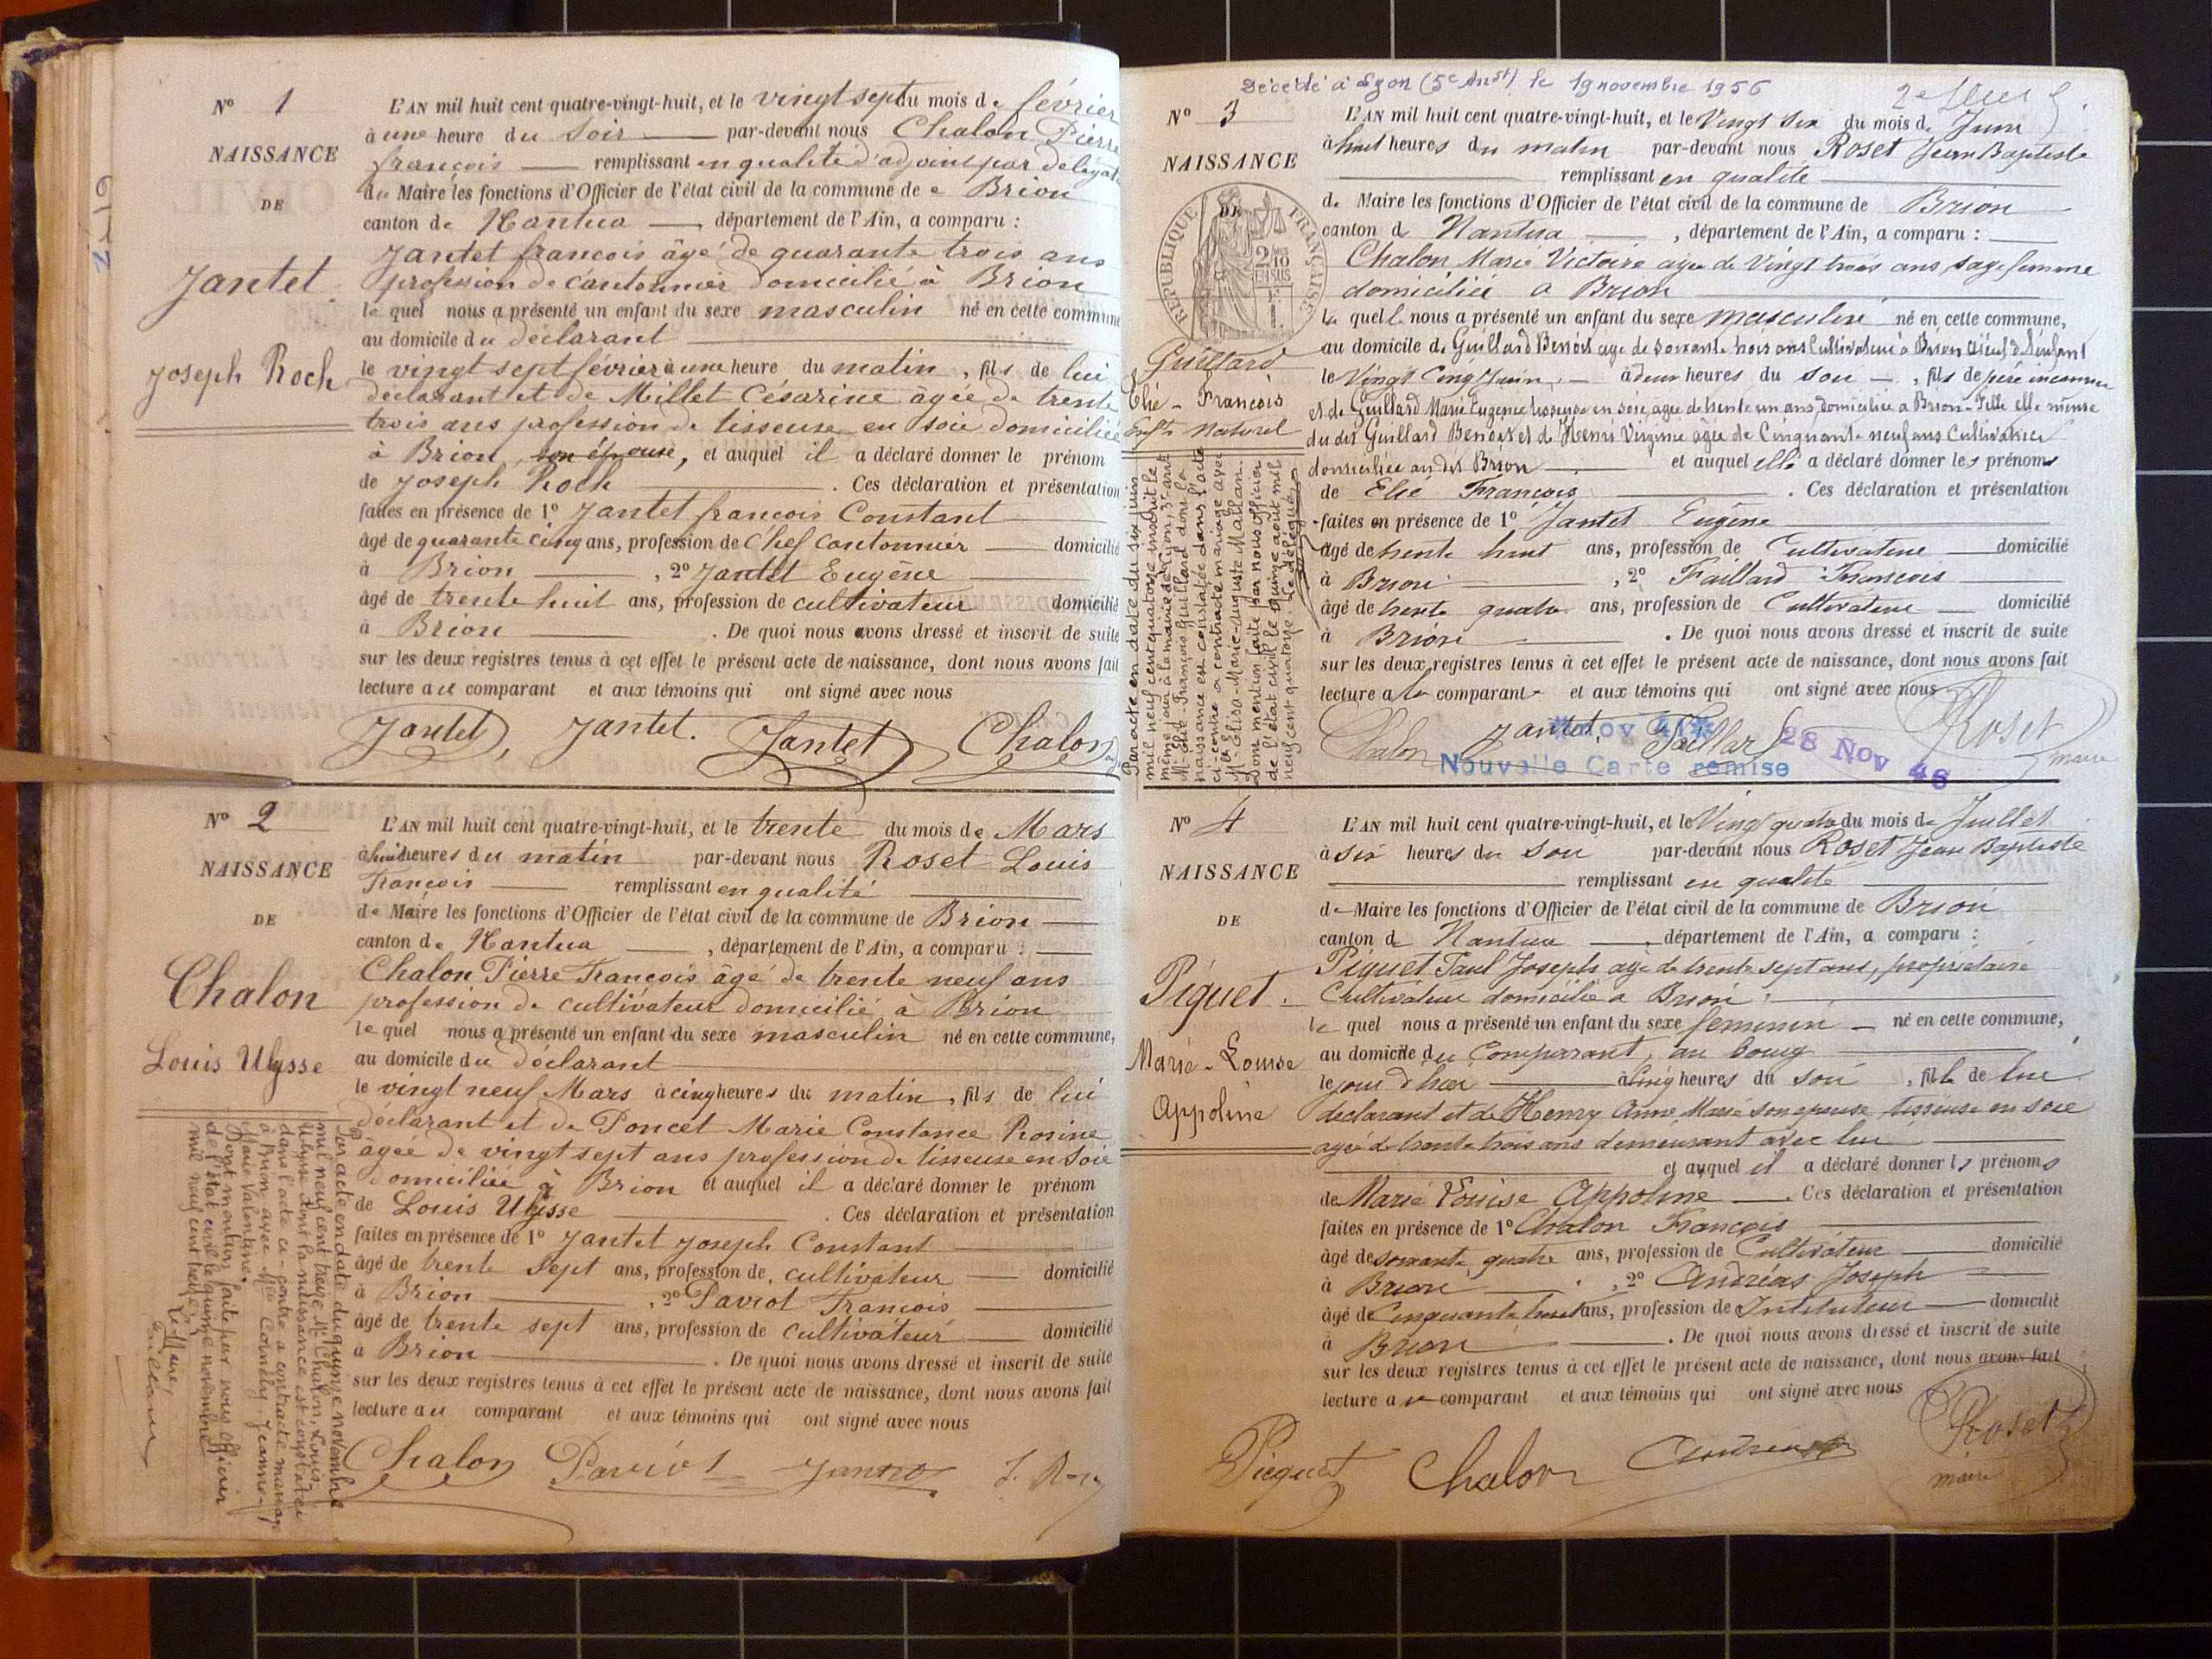 N° 1
NAISSANCE
DE
Jantet
Joseph Roch
L'AN mil huit cent quatre-vingt-huit, et le vingt sept du mois de février
à une heure du soir par-devant nous Chalon Pierre
françois remplissant en qualité d'adjoint par délégat
du Maire les fonctions d'Officier de l'état civil de la commune de Brion
canton de Nantua, département de l'Ain, a comparu :
Jantet françois âgé de quarante trois ans
profession de cantonnier domicilié à Brion
le quel nous a présenté un enfant du sexe masculin né en cette commune
au domicile du déclarant
le vingt sept février à une heure du matin, fils de lui
déclarant et de Millet Césarine âgée de trente
trois ans profession de tisseuse en soie domiciliée
à Brion, son épouse, et auquel il a déclaré donner le prénom
de Joseph Roch. Ces déclaration et présentation
faites en présence de 1° Jantet françois Constant
âgé de quarante cinq ans, profession de Chef cantonnier domicilié
à Brion, 2° Jantet Eugène
âgé de trente huit ans, profession de cultivateur domicilié
à Brion. De quoi nous avons dressé et inscrit de suite
sur les deux registres tenus à cet effet le présent acte de naissance, dont nous avons fait
lecture au comparant et aux témoins qui ont signé avec nous
Jantet, Jantet. Jantet Chalon
N° 2
NAISSANCE
DE
Chalon
Louis Ulysse
L'AN mil huit cent quatre-vingt-huit, et le trente du mois de Mars
à huit heures du matin par-devant nous Roset Louis
François remplissant en qualité
de Maire les fonctions d'Officier de l'état civil de la commune de Brion
canton de Nantua, département de l'Ain, a comparu :
Chalon Pierre François âgé de trente neuf ans
profession de cultivateur domicilié à Brion
le quel nous a présenté un enfant du sexe masculin né en cette commune,
au domicile du déclarant
le vingt neuf Mars à cinq heures du matin, fils de lui
déclarant et de Poncet Marie Constance Rosine
âgée de vingt sept ans profession de tisseuse en Soie
domiciliée à Brion et auquel il a déclaré donner le prénom
de Louis Ulysse. Ces déclaration et présentation
faites en présence de 1° Jantet Joseph Constant
âgé de trente sept ans, profession de cultivateur domicilié
à Brion, 2° Paviot François
âgé de trente sept ans, profession de cultivateur domicilié
à Brion. De quoi nous avons dressé et inscrit de suite
sur les deux registres tenus à cet effet le présent acte de naissance, dont nous avons fait
lecture au comparant et aux témoins qui ont signé avec nous
Chalon Paviot Jantet
Par acte en date du quinze novembre
mil neuf cent treize Mr Chalon, Louis-
Ulysse dont la naissance est constatée
dans l'acte ci-contre a contracté mariage
à Brion avec Mlle Jeanne-
Marie Valentine.
Dont mention faite par nous officier
de l'état civil le quinze novembre
mil neuf cent treize.
Le Maire,
Décédé à Lyon (5e Arrdt) le 19 novembre 1956
N° 3
NAISSANCE
DE
RÉPUBLIQUE FRANÇAISE
Guillard
Elie-François
Enft Naturel
L'AN mil huit cent quatre-vingt-huit, et le Vingt Six du mois de Juin
à huit heures du matin par-devant nous Roset Jean Baptiste
remplissant en qualité
de Maire les fonctions d'Officier de l'état civil de la commune de Brion
canton de Nantua, département de l'Ain, a comparu :
Chalon Marie Victoire agée de Vingt trois ans sage femme
domiciliée a Brion
la quelle nous a présenté un enfant du sexe masculin né en cette commune,
au domicile de Guillard Benoit age de soixante trois ans Cultivateur à Brion aïeul de l'enfant
le Vingt Cinq Juin à deux heures du soir, fils de père inconnu
et de Guillard Marie Eugenie tisseuse en soie, agée de trente un ans, domiciliée a Brion - Fille elle même
du dit Guillard Benoit et de Henri Virginie agée de Cinquante neuf ans Cultivatrice
domiciliée au dit Brion et auquel elle a déclaré donner les prénoms
de Elie François. Ces déclaration et présentation
faites en présence de 1° Jantet Eugène
âgé de trente huit ans, profession de Cultivateur domicilié
à Brion, 2° Faillard François
âgé de trente quatre ans, profession de Cultivateur domicilié
à Brion. De quoi nous avons dressé et inscrit de suite
sur les deux registres tenus à cet effet le présent acte de naissance, dont nous avons fait
lecture a la comparante et aux témoins qui ont signé avec nous
Chalon Jantet Faillard Roset
maire
Nov 41
Nouvelle Carte remise
28 Nov 46
Par acte en date du six juin
mil neuf cent quatorze inscrit le
même jour à la mairie de Lyon, 3e arrt
Mr Elie-François Guillard dont la
naissance est constatée dans l'acte
ci-contre a contracté mariage avec
Mlle Elisa-Marie-Auguste Mallan.
Dont mention faite par nous officier
de l'état civil le quinze août mil
neuf cent quatorze. Le délégué
N° 4
NAISSANCE
DE
Piquet.
Marie-Louise
Appoline
L'AN mil huit cent quatre-vingt-huit, et le Vingt quatre du mois de Juillet
à six heures du soir par-devant nous Roset Jean Baptiste
remplissant en qualité
de Maire les fonctions d'Officier de l'état civil de la commune de Brion
canton de Nantua, département de l'Ain, a comparu :
Piquet Paul Joseph agé de trente sept ans, propriétaire
Cultivateur domicilié a Brion
le quel nous a présenté un enfant du sexe feminin né en cette commune,
au domicile du Comparant, au bourg
le jour d'hier à cinq heures du soir, fille de lui
declarant et de Henry Anne Marie son epouse, tisseuse en soie
agée de trente trois ans demeurant avec lui
et auquel il a déclaré donner les prénoms
de Marie Louise Appoline. Ces déclaration et présentation
faites en présence de 1° Chalon François
âgé de soixante quatre ans, profession de Cultivateur domicilié
à Brion, 2° Andréas Joseph
âgé de Cinquante huit ans, profession de Instituteur domicilié
à Brion. De quoi nous avons dressé et inscrit de suite
sur les deux registres tenus à cet effet le présent acte de naissance, dont nous avons fait
lecture au comparant et aux témoins qui ont signé avec nous
Piquet Chalon Andréas Roset
maire